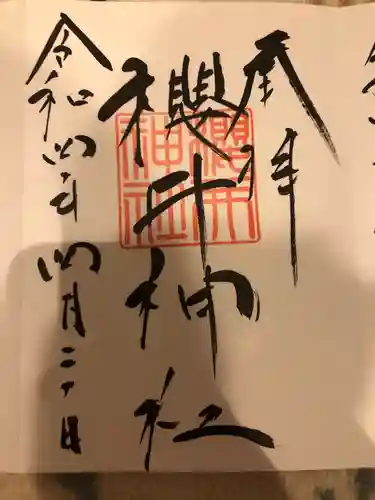 奉拝
櫻井神社
櫻井神社
令和四年四月二十日